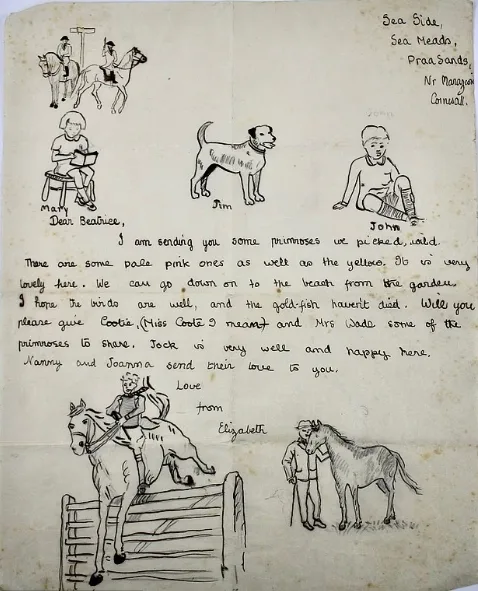 Sea Side,
Sea Meads,
Praa Sands,
Nr Marazion
Cornwall.
Mary
Jim
John
Dear Beatrice,
I am sending you some primroses we picked, wild.
There are some pale pink ones as well as the yellow. It is very
lovely here. We can go down on to the beach from the garden.
I hope the birds are well, and the gold-fish haven't died. Will you
please give Cootie, (Miss Coote I mean) and Mrs Wade some of the
primroses to share. Jock is very well and happy here.
Nanny and Joanna send their love to you.
Love
from
Elizabeth